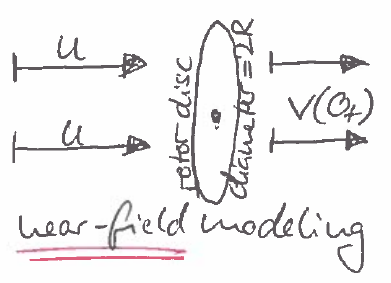 u
u
rotor disc
diameter = 2R
V(0+)
near-field modeling